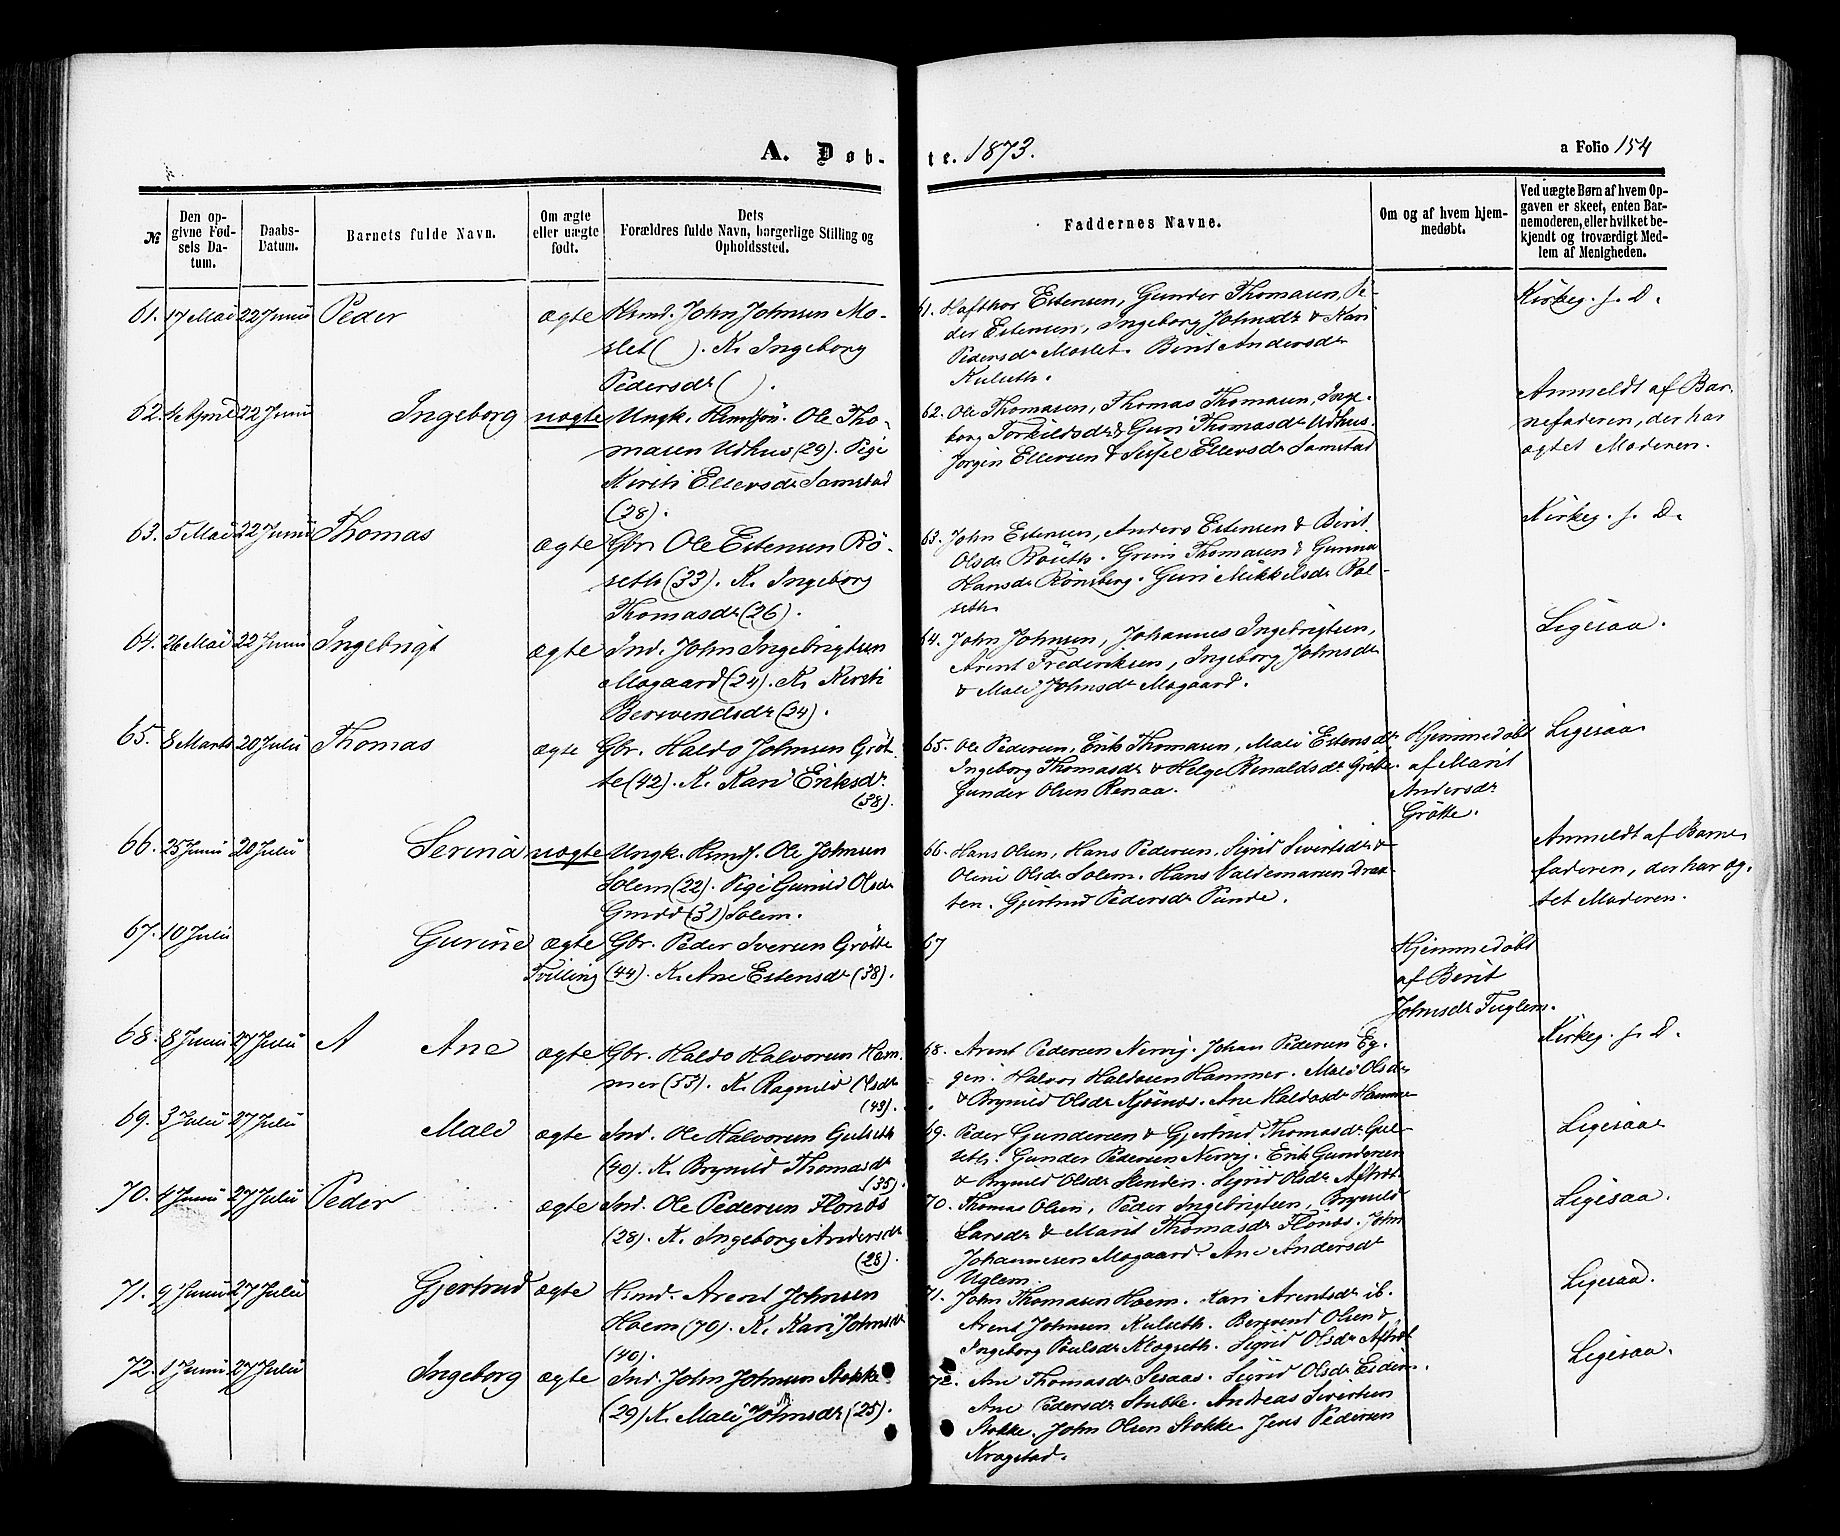 A. Døb-
te. 1873.
a Folio 154
№
Den op-
givne Fød-
sels Da-
tum.
Daabs-
Datum.
Barnets fulde Navn.
Om ægte
eller uægte
født.
Dets
Forældres fulde Navn, borgerlige Stilling og
Opholdssted.
Faddernes Navne.
Om og af hvem hjem-
medøbt.
Ved uægte Børn af hvem Op-
gaven er skeet, enten Bar-
nemoderen, eller hvilket be-
kjendt og troværdigt Med-
lem af Menigheden.
61. 17 Mai 22 Juni Peder ægte Hsmd. John Johnsen Mo-
slet ( ). K. Ingeborg
Pedersdr ( ).
61. Hafthor Estensen, Gunder Thomasen, Pe-
der Estensen, Ingeborg Johnsdr & Kari
Pedersdr Moslet. Birit Andersdr
Kulseth.
Kirkeg. s. D.
62. April 22 Juni Ingeborg uægte Ungk. Hsmdsøn. Ole Tho-
masen Udhus (29). Pige
Kirsti Ellersdr Samstad
(28).
62. Ole Thomasen, Thomas Thomasen, Inge-
borg Torkildsdr & Guri Thomasdr Udhus.
Jørgin Ellersen & Sissel Ellersdr Samstad
Anmeldt af Bar-
nefaderen, der har
ægtet Moderen.
63. 5 Mai 22 Juni Thomas ægte Gbr. Ole Estensen Rø-
seth (33). K. Ingeborg
Thomasdr (26).
63. John Estensen, Anders Estensen & Birit
Olsdr Røseth. Grim Thomasen & Gunna
Hansdr Rønsberg. Guri Mikkelsdr Rol-
seth
Kirkeg. s. D.
64. 26 Mai 22 Juni Ingebrigt ægte Ind. John Ingebrigtsen
Mogaard (24). K. Kirsti
Bersvendsdr (24).
64. John Johnsen, Johannes Ingebrigtsen,
Arent Frederiksen, Ingeborg Johnsdr
& Mali Johnsdr Mogaard.
Ligesaa.
65. 8 Marts 20 Juli Thomas ægte Gbr. Haldo Johnsen Grøt-
te (42). K. Kari Eriksdr
(38).
65. Ole Pedersen, Erik Thomasen, Mali Estensdr
Ingeborg Thomasdr & Helge Renaldsdr Grøtte.
Gunder Olsen Renaa.
Hjemmedøbt
af Marit
Andersdr
Grøtte.
Ligesaa
66. 25 Juni 20 Juli Serina uægte Ungk. Hsmds. Ole Johnsen
Solem (22). Pige Gunild Olsdr
(31) Solem.
66. Hans Olsen, Hans Pedersen. Sigrid Sivertsdr &
Oline Olsdr Solem. Hans Valdemarsen Drax-
ten. Gjertrud Pedersdr Punde.
Anmeldt af Barne
faderen, der har æg-
tet Moderen.
67. 10 Juli Gurine ægte Gbr. Peder Iversen Grøtte
Tvilling (44). K. Ane Estensdr (38).
67
Hjemmedøbt
af Birit
Johnsdr Fuglem.
68. 8 Juni 27 Juli A Ane ægte Gbr. Haldo Halvorsen Ham-
mer (53). K. Ragnild Olsdr
(43).
68. Arent Pedersen Nervig. Johan Pedersen Eg-
gen. Halvor Haldosen Hammer. Mali Olsdr
& Brynild Olsdr Kjøsnæs. Ane Haldosdr Hamme
Kirkeg. s. D.
69. 3 Juli 27 Juli Mali ægte Ind. Ole Halvorsen Gulseth
(40). K. Brynild Thomasdr
(35)
69. Peder Gundersen & Gjertrud Thomasdr Gul-
seth. Gunder Pedersen Nervig. Erik Gundersen
& Brynild Olsdr Slinden. Sigrid Olsdr Aftret
Ligesaa
70. 4 Juni 27 Juli Peder ægte Ind. Ole Pedersen Flønæs
(28). K. Ingeborg Andersdr
(28)
70. Thomas Olsen, Peder Ingebrigtsen, Brynild
Larsdr & Marit Thomasdr Flønæs. John
Johannesen Mogaard. Ane Andersdr
Uglem.
Ligesaa.
71. 9 Juni 27 Juli Gjertrud ægte Hsmd. Arent Johnsen
Hoem (70). K. Kari Johnsdr
(40).
71. John Thomasen Hoem. Kari Arentsdr ib.
Arent Johnsen Kulseth. Bersvend Olsen &
Ingeborg Poulsdr Klogseth. Sigrid Olsdr Aftret
Ligesaa.
72. 1 Juni 27 Juli Ingeborg ægte Ind. John Johnsen Stokke
(29) K. Mali Johnsdr (25).
72. Ane Thomasdr Sesaas. Sigrid Olsdr
Ane Pedersdr Stubbe. Andreas Sivertsen
Stokke. John Olsen Stokke. Jens Pedersen
Kragstad.
Ligesaa.